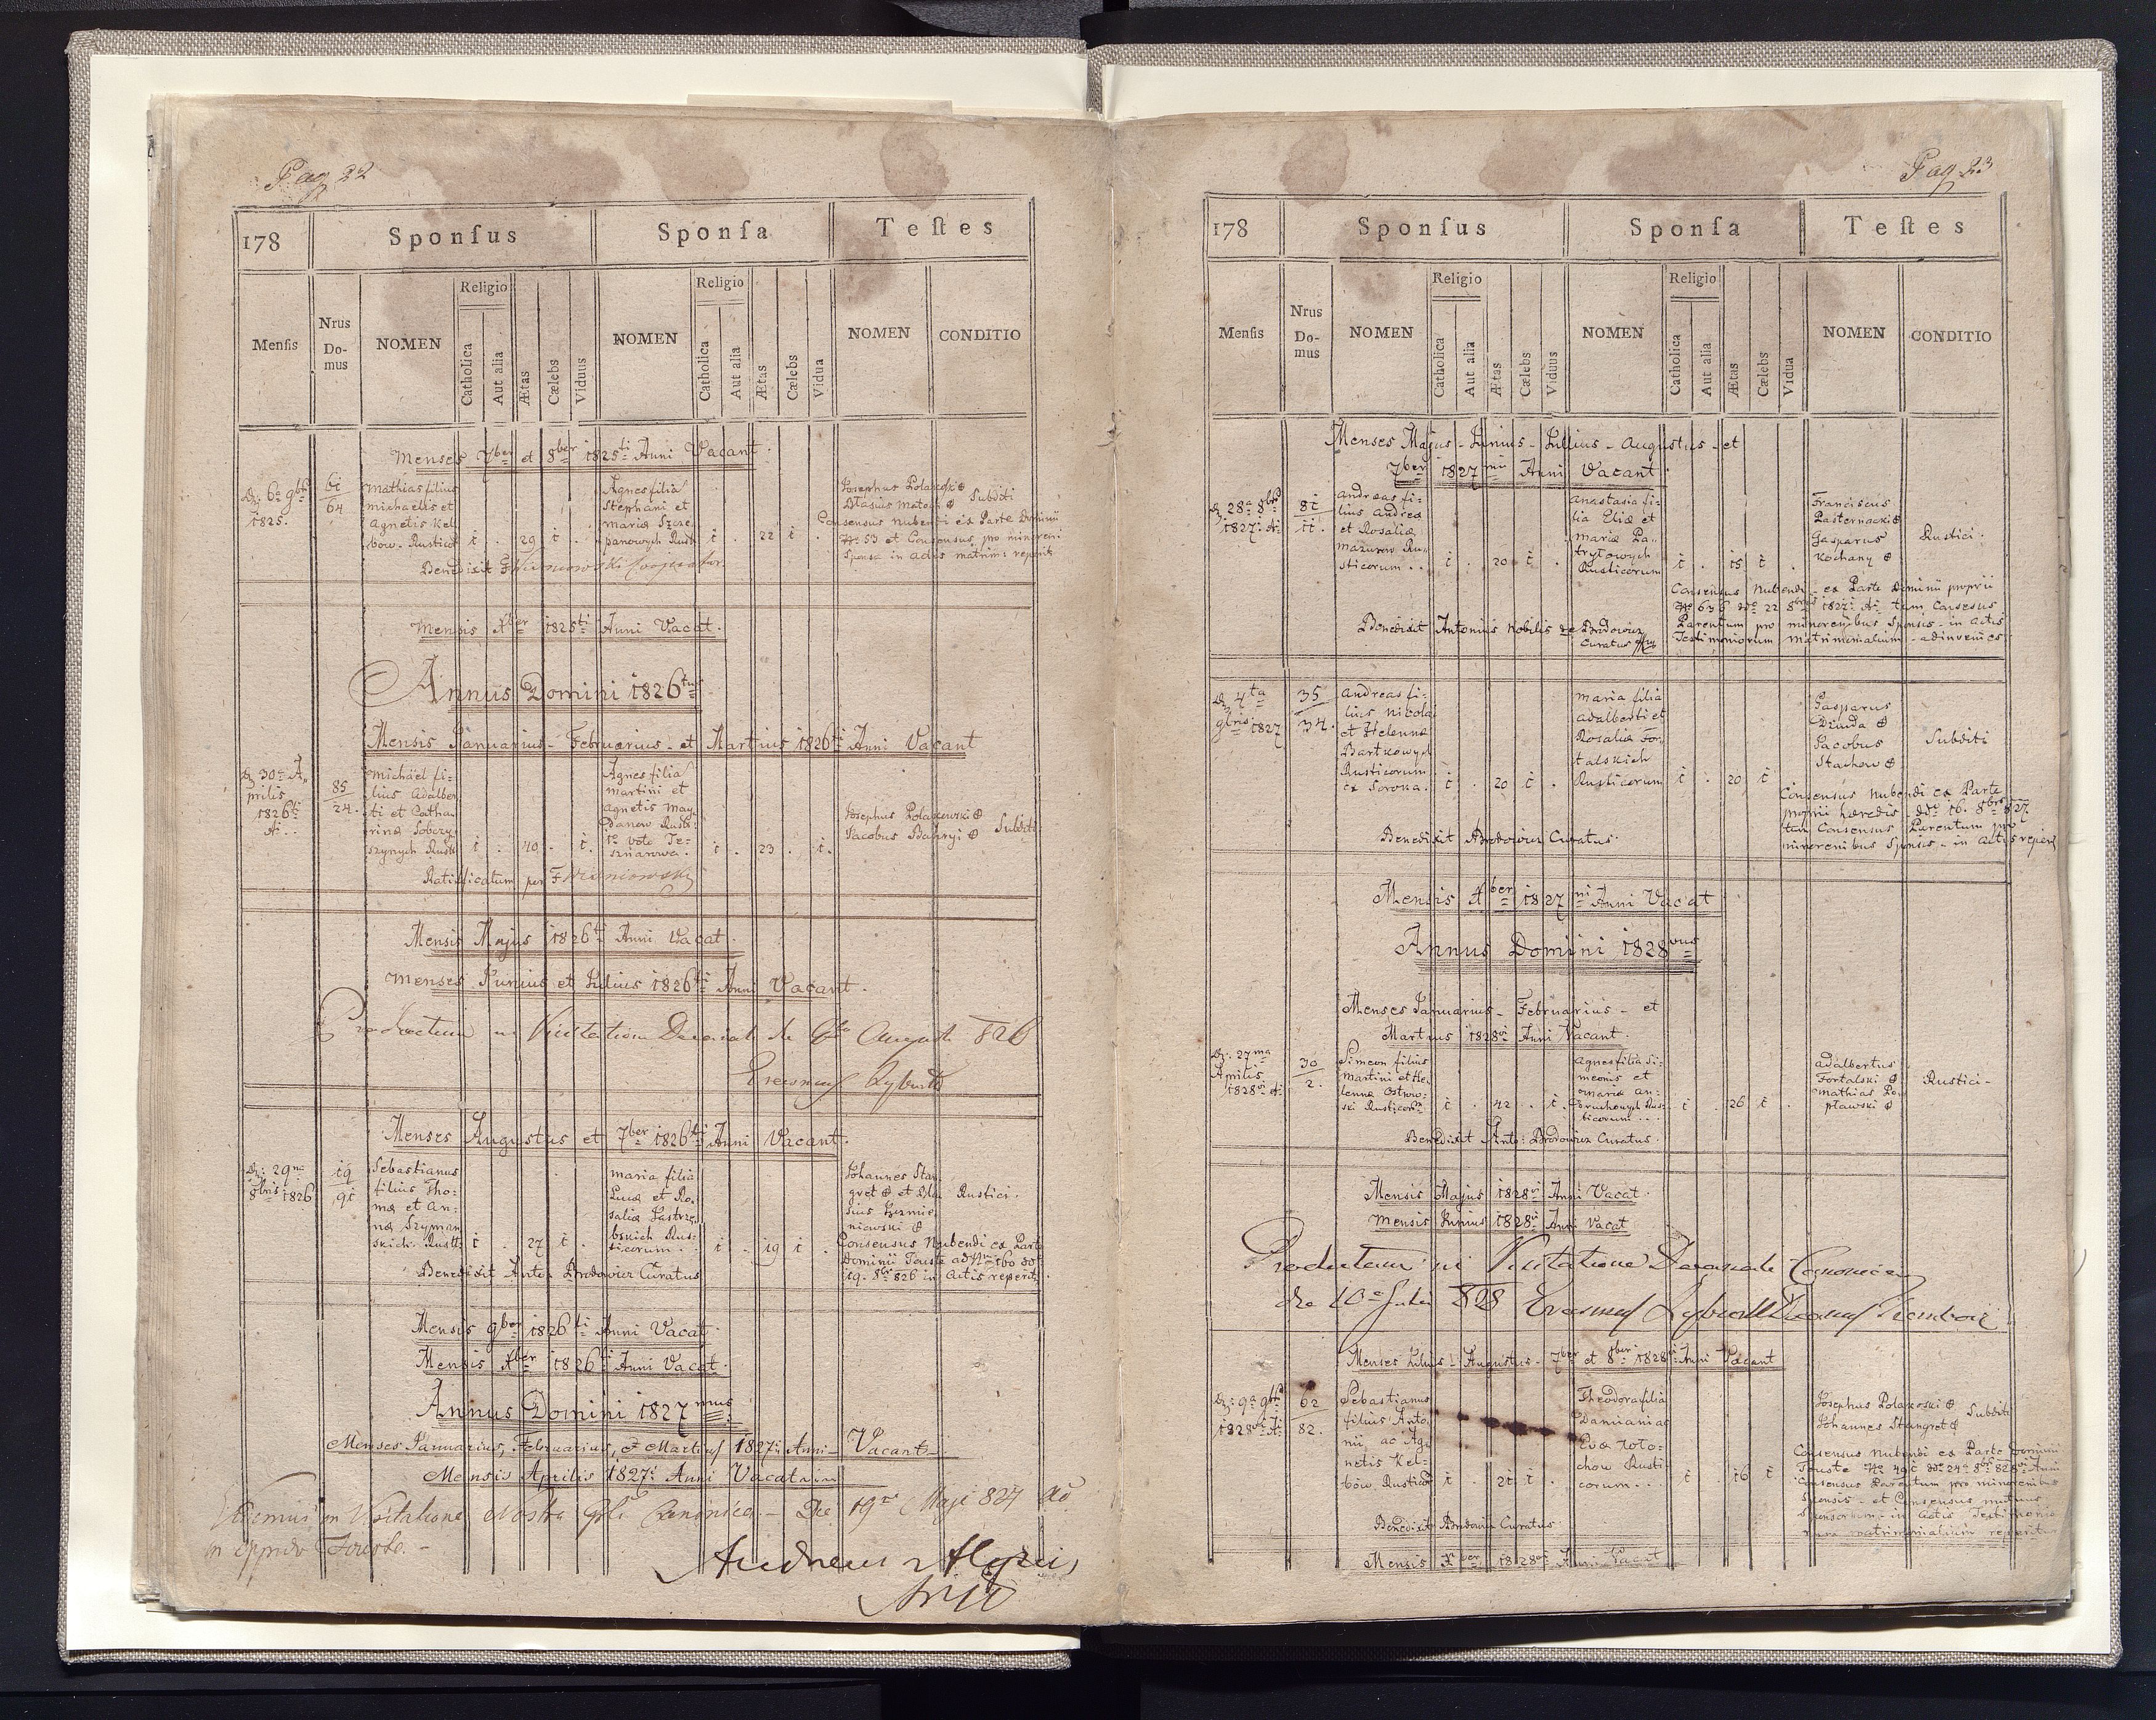 Pag 22
178 Sponſus Sponſa Teſtes
Menſis Nrus Domus NOMEN Religio Catholica Aut alia Ætas Cælebs Viduus NOMEN Religio Catholica Aut alia Ætas Cælebs Vidua NOMEN CONDITIO
Menses 7ber et 8ber 1825ti Anni Vacant.
1825.
64
Mathias filius
Michaelis et
Agnetis Kel-
bow. Rustico
1 . 29 1 .
Agnes filia
Stephani et
Mariæ Szcze
panowych Rust
1 . 22 1 .
Josephus Polakoski
Subditi
Consensus Nubendi ex Parte Dominii
No 53 et Consensus pro minoreni
Sponsa in Actis matrim: reperit
Benedixit F Wisniowski Cooperator.
Mensis Xber 1825ti Anni Vacat.
Annus Domini 1826tus
Mensis Januarius - Februarius - et Martius 1826ti Anni Vacant
D. 30a A-
prilis
1826ti
A:
85
24.
Michäel fi-
lius Adalber
ti et Catha-
rinæ Sobczy
szynych Rusti
1 . 40 . 1.
Agnes filia
Martini et
Agnetis May
Danow Rusti
1o voto
1 . 23 . 1.
Josephus Polakowski
Jacobus
Subditi
Ratificatum per F Wisniowski
Mensis Majus 1826ti Anni Vacat.
Menses Junius et Julius 1826ti Anni Vacant.
Productum in Visitatione Decanali die Augusti 826
Erasmus
Menses Augustus et 7ber 1826ti Anni Vacant.
D: 29na
8bris 1826
19
91
Sebastianus
filius Tho-
mæ et An-
næ Szyman
skich. Rusti:
1 . 27 1 .
Maria filia
Lucæ et Ro-
saliæ Jastrze
bskich Rus-
ticorum. .
1 . 19 1 .
Johannes Stan
gret et Bla
sius
niowski
Rustici.
Consensus Nubendi ex Parte
Dominii Touste ad Nm 160 ddo
19. 8br 826 in Actis reperit.
Benedixit Anto: Brodowicz Curatus
Mensis 9ber 1826ti Anni Vacat.
Mensis Xber 1826ti Anni Vacat.
Annus Domini 1827mus
Menses Januarius, Februarius, & Martius 1827i Anni Vacant
Mensis Aprilis 1827i Anni Vacat
in Visitatione Nostra Canonica. - Die 19a Maji 827
in oppido Touste. -
Pag 23
178 Sponſus Sponſa Teſtes
Menſis Nrus Domus NOMEN Religio Catholica Aut alia Ætas Cælebs Viduus NOMEN Religio Catholica Aut alia Ætas Cælebs Vidua NOMEN CONDITIO
Menses Majus - Junius - Julius - Augustus - et
7ber 1827mi Anni Vacant.
D. 28a 8bris
1827i A:
81
11.
Andreas fi-
lius Andreæ
et Rosaliæ
Mazurow Ru-
sticorum . .
1 . 20 1 .
Anastasia fi-
lia Eliæ et
Mariæ Pa-
trylowych
Rusticorum
1 . 15 1 .
Franciscus
Pasternacki
Gasparus
Kochany
Rustici.
Consensus Nubendi - ex Parte Dominii proprii
No 636 ddo 22 8bris 1827i A: tam Consesus
Parentum pro minorenibus Sponsis - in Actis
Testimoniorum Matrimonialium - adinvenies
Benedixit Antonius Nobilis de Brodowicz
Curatus
D. 4ta
9bris 1827
35
34.
Andreas fi-
lius Nicolai
et Helennæ
Bartkowych
Rusticorum
ex Soroka.
1 . 20 1 .
Maria filia
Adalberti et
Rosaliæ For
talskich
Rusticorum
1 . 20 1
Gasparus
Jacobus
Stachow
Subditi
Consensus Nubendi ex Parte
proprii hæredis - ddo 16. 8bris 827
tam Consensus Parentum pro
minorenibus Sponsis - in Actis reperi
Benedixit Brodowicz Curatus.
Mensis Xber 1827mi Anni Vacat
Annus Domini 1828vus
Menses Januarius - Februarius - et
Martius 1828vi Anni Vacant.
D: 27ma
Aprilis
1828vi A:
30
2.
Simeon filius
Martini et He-
lennæ Ostrow-
ski Rusticorum
1 . 42 . 1.
Agnes filia Si-
meonis et
Mariæ An-
druchowych Rus-
ticorum . .
1 . 26 1 .
Adalbertus
Fortalski
Mathias Po-
pławski
Rustici -
Benedixit Anto: Brodowicz Curatus.
Mensis Majus 1828vi Anni Vacat.
Mensis Junius 1828vi Anni Vacat
Productum in Visitatione Decanali Canonica
die 10a Julii 828 Erasmus
Menses Julius - Augustus - 7ber et 8ber 1828vi Anni Vacant
D: 9a 9bris
1828vi A:
62
82.
Sebastianus
filius Anto
nii ac Ag-
netis Kel-
bow Rusticor
1 . 21 1 .
Theodora filia
Damiani ac
Evæ Koto-
chow Rusti
corum . . .
1 16 1
Josephus Polakoski
Johannes Stangret
Subditi
Consensus Nubendi ex Parte Dominii
Touste No 491 ddo 24a 8bris 828vi Anni
Consensus Parentum pro minorenibus
Sponsis - et Consensus mutuus
Sponsorum - in Actis Testimonio
rum matrimonialium reperitur
Benedixit Brodowicz Curatus.
Mensis Xber 1828vi Anni Vacat